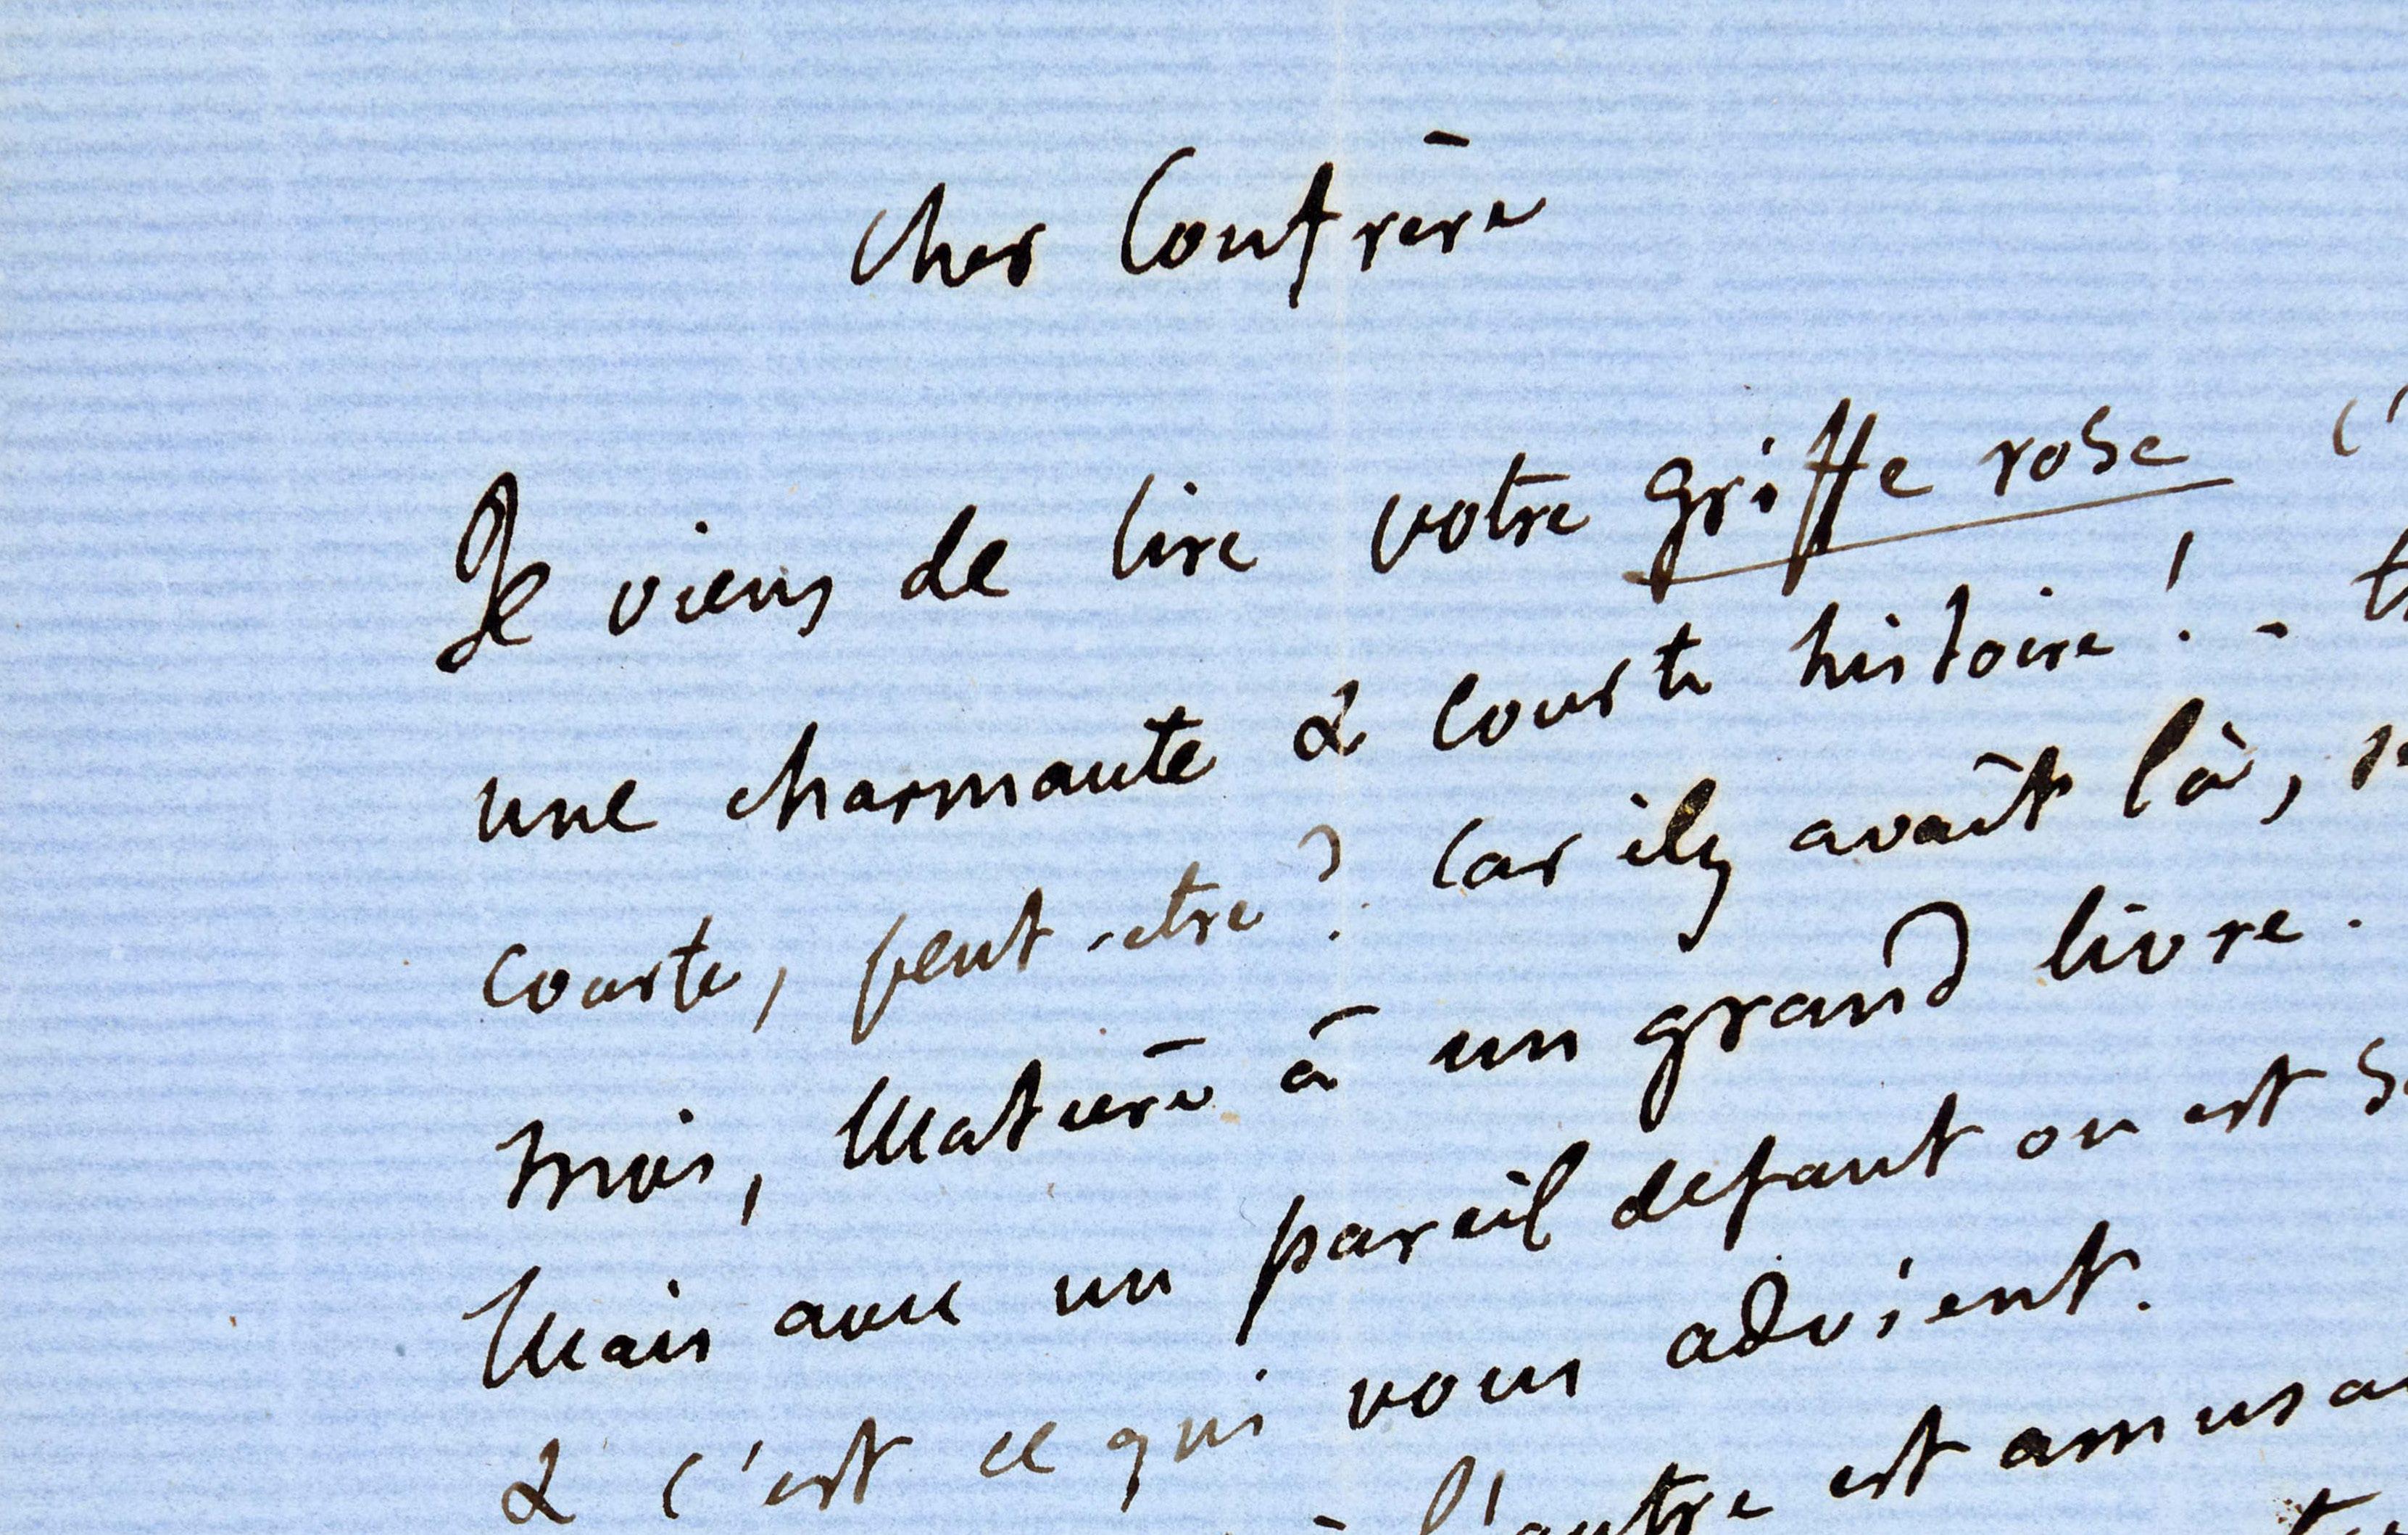 Cher Confrère
Je viens de lire votre griffe rose c'
une charmante & courte histoire! -
courte, peut-etre? Car il y avait là,
mois, Matière à un grand livre.
Mais avec un pareil defaut on est
& c'est ce qui vous advient.
à l'autre est amusa